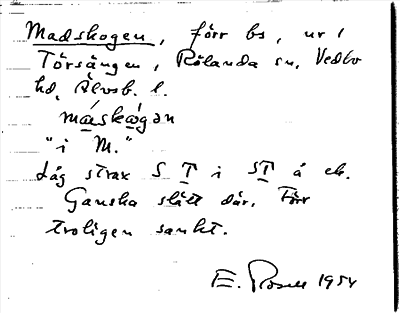 Madskogen, förr bs, ur 1
Törsängen, Rölanda sn, Vedbo
hd, Älvsb. l.
máskò̱gən
"i M."
Låg strax S T i ST å ek.
Ganska slätt där. Förr
troligen sankt.
E. Rosell 1954